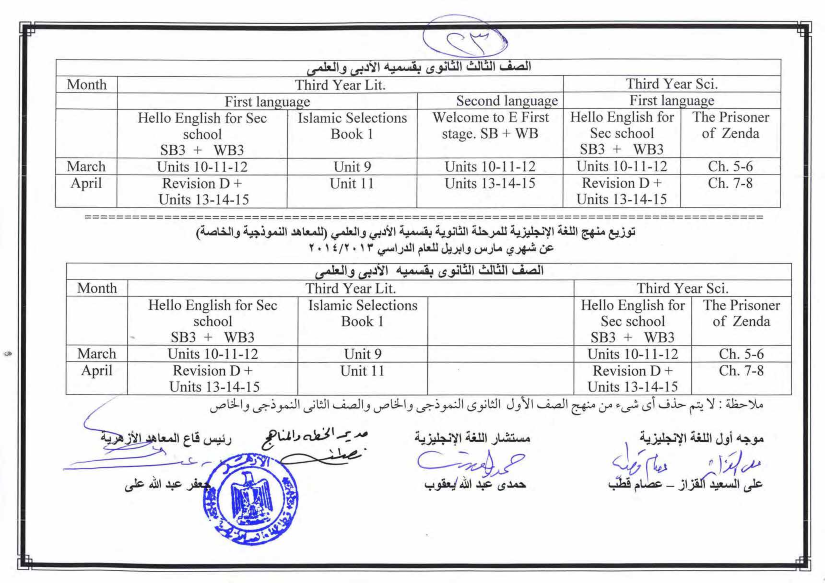 ٢٣
الصف الثالث الثانوى بقسميه الأدبي والعلمى
Month Third Year Lit. Third Year Sci.
First language Second language First language
Hello English for Sec school SB3 + WB3 Islamic Selections Book 1 Welcome to E First stage. SB + WB Hello English for Sec school SB3 + WB3 The Prisoner of Zenda
March Units 10-11-12 Unit 9 Units 10-11-12 Units 10-11-12 Ch. 5-6
April Revision D + Units 13-14-15 Unit 11 Units 13-14-15 Revision D + Units 13-14-15 Ch. 7-8
توزيع منهج اللغة الإنجليزية للمرحلة الثانوية بقسمية الأدبي والعلمي (للمعاهد النموذجية والخاصة)
عن شهري مارس وابريل للعام الدراسي ٢٠١٤/٢٠١٣
الصف الثالث الثانوى بقسميه الأدبى والعلمى
Month Third Year Lit. Third Year Sci.
Hello English for Sec school SB3 + WB3 Islamic Selections Book 1 Hello English for Sec school SB3 + WB3 The Prisoner of Zenda
March Units 10-11-12 Unit 9 Units 10-11-12 Ch. 5-6
April Revision D + Units 13-14-15 Unit 11 Revision D + Units 13-14-15 Ch. 7-8
ملاحظة : لا يتم حذف أى شىء من منهج الصف الأول الثانوى النموذجى والخاص والصف الثانى النموذجى والخاص
موجه أول اللغة الإنجليزية مستشار اللغة الإنجليزية مدير الخطه والمناهج رئيس قاع المعاهد الأزهرية
على السعيد القزاز – عصام قطب حمدى عبد الله يعقوب جعفر عبد الله على